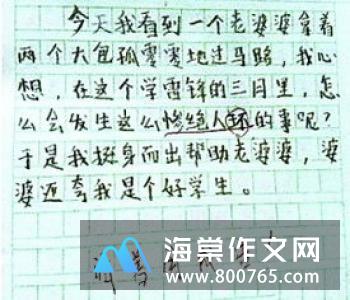 今天我看到一个老婆婆拿着
两个大包孤零零地过马路，我心
想，在这个学雷锋的三月里，怎
么会发生这么惨绝人环的事呢？
于是我挺身而出帮助老婆婆，婆
婆迈夸我是个好学生。
海棠作文网
www.800765.com